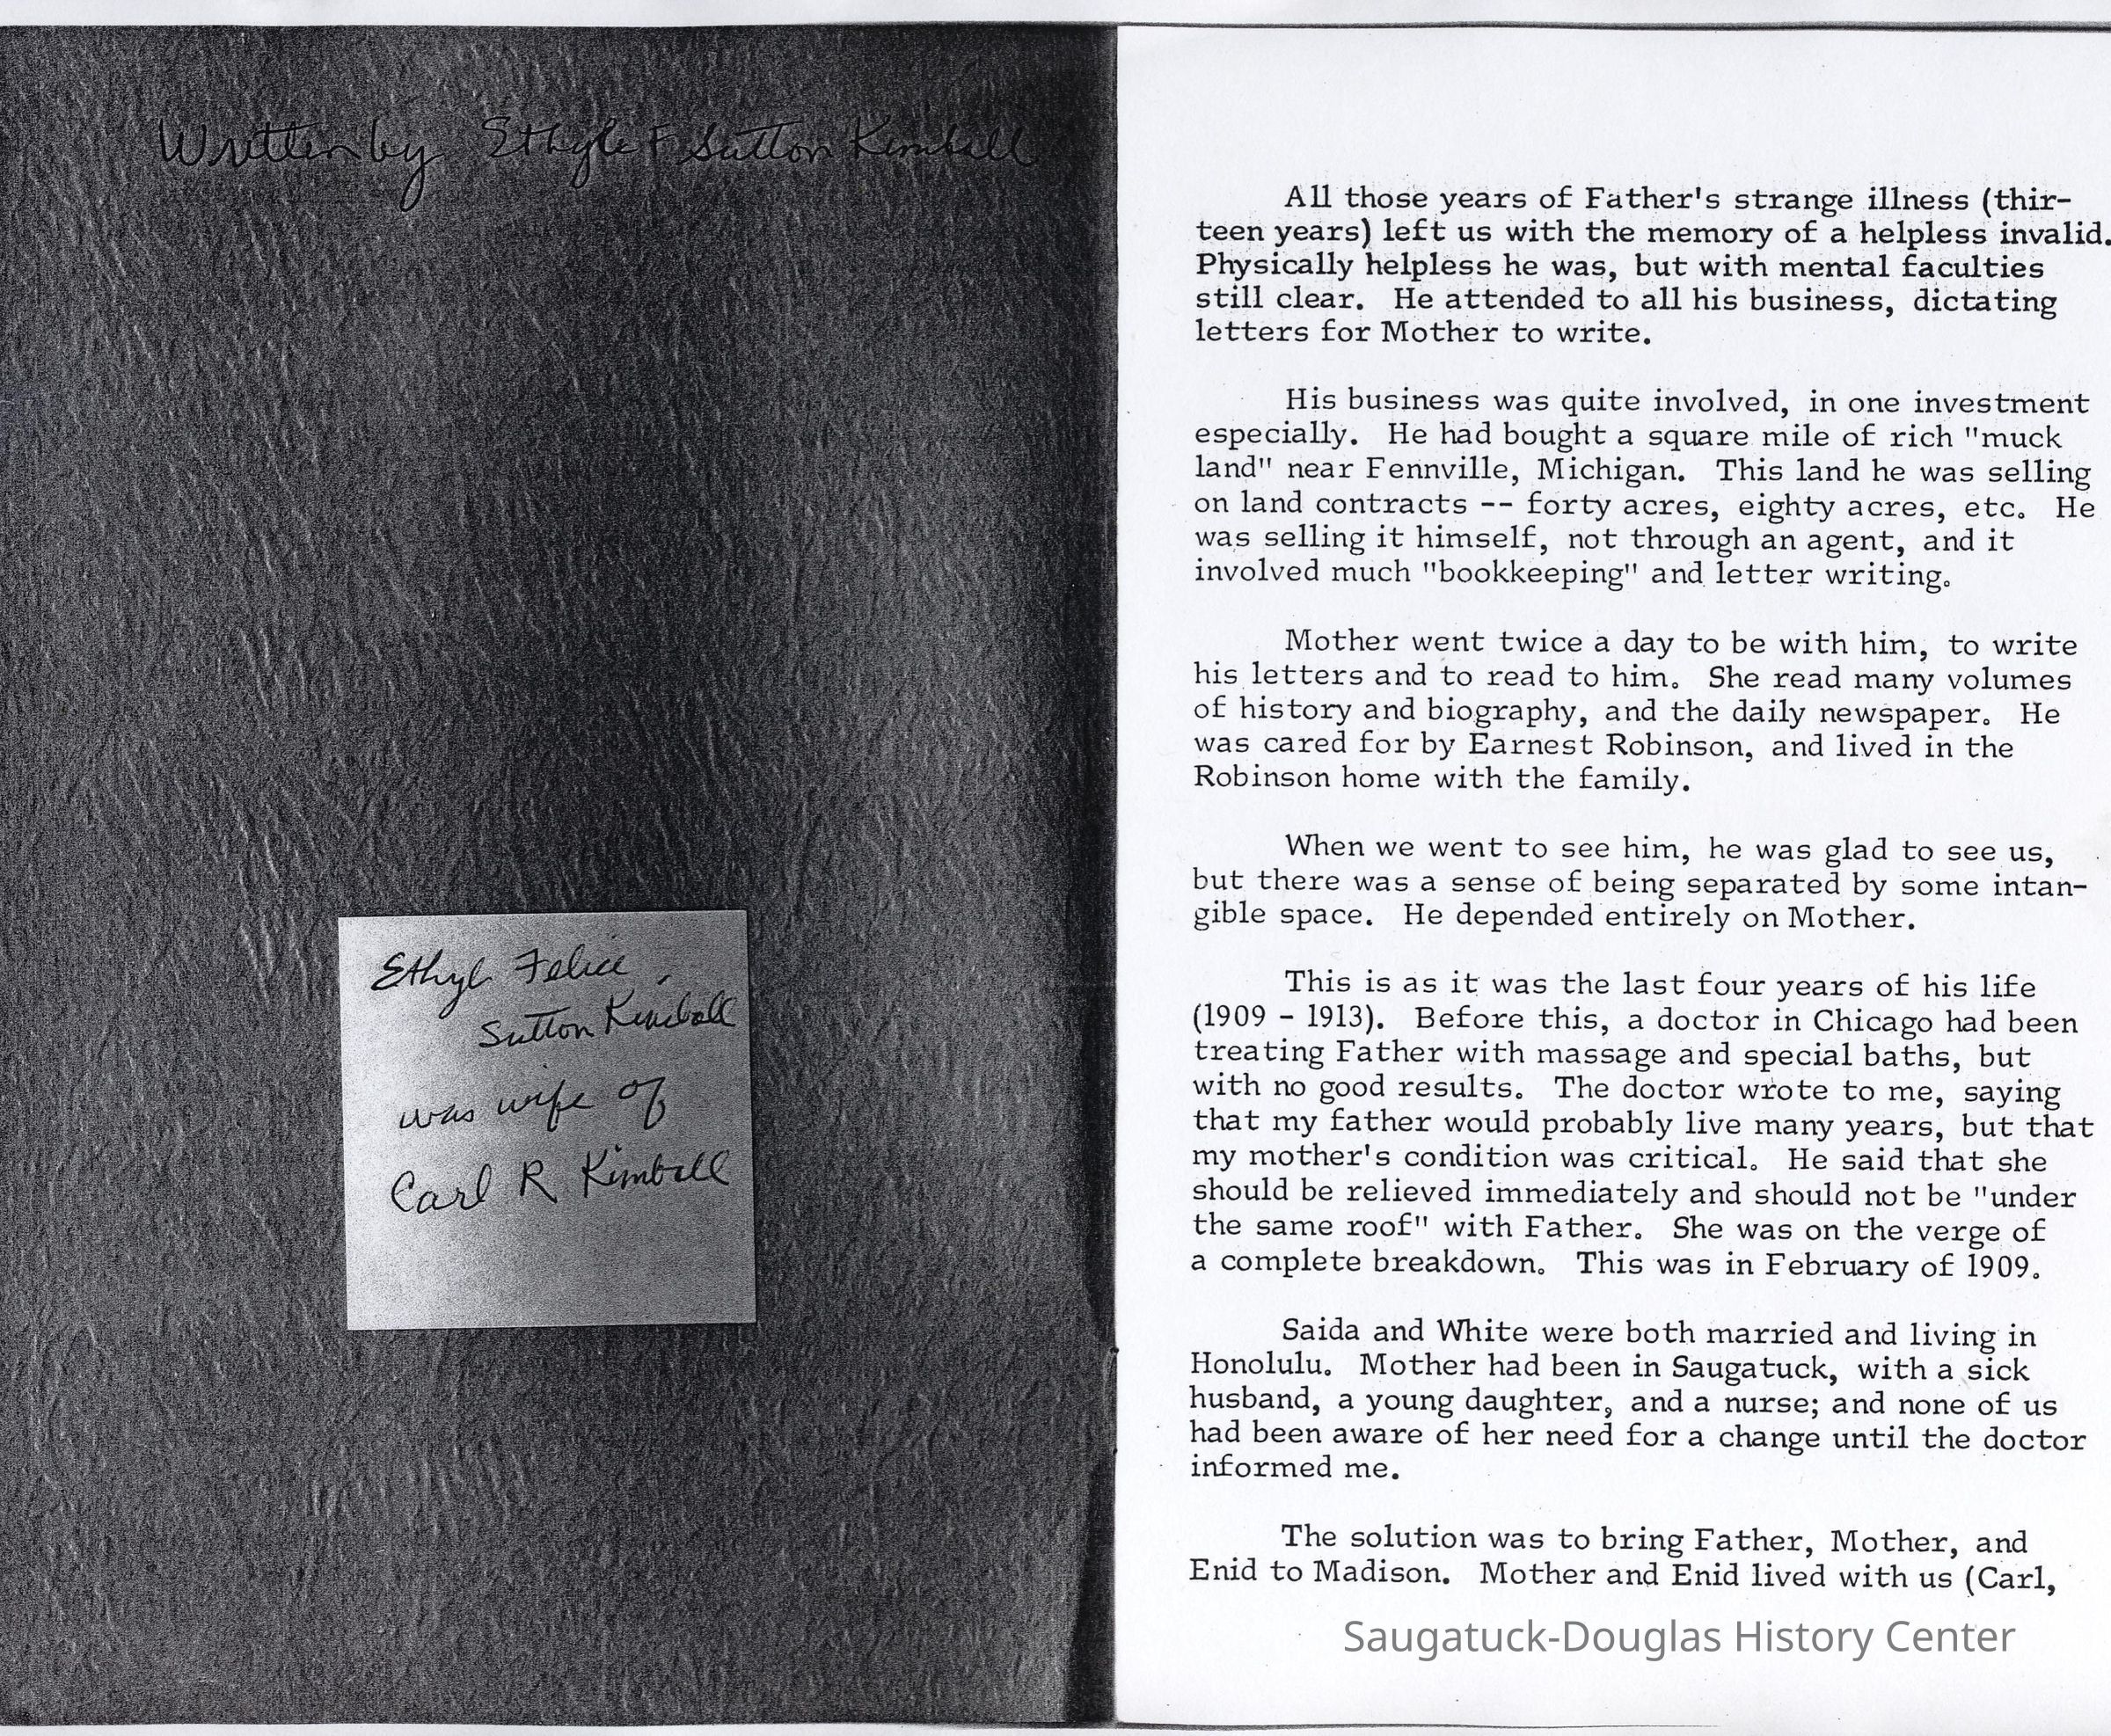 Written by Ethyle F Sutton Kimball
Ethyl Felice
Sutton Kimball
was wife of
Carl R Kimball
All those years of Father's strange illness (thir-
teen years) left us with the memory of a helpless invalid.
Physically helpless he was, but with mental faculties
still clear. He attended to all his business, dictating
letters for Mother to write.
His business was quite involved, in one investment
especially. He had bought a square mile of rich "muck
land" near Fennville, Michigan. This land he was selling
on land contracts -- forty acres, eighty acres, etc. He
was selling it himself, not through an agent, and it
involved much "bookkeeping" and letter writing.
Mother went twice a day to be with him, to write
his letters and to read to him. She read many volumes
of history and biography, and the daily newspaper. He
was cared for by Earnest Robinson, and lived in the
Robinson home with the family.
When we went to see him, he was glad to see us,
but there was a sense of being separated by some intan-
gible space. He depended entirely on Mother.
This is as it was the last four years of his life
(1909 - 1913). Before this, a doctor in Chicago had been
treating Father with massage and special baths, but
with no good results. The doctor wrote to me, saying
that my father would probably live many years, but that
my mother's condition was critical. He said that she
should be relieved immediately and should not be "under
the same roof" with Father. She was on the verge of
a complete breakdown. This was in February of 1909.
Saida and White were both married and living in
Honolulu. Mother had been in Saugatuck, with a sick
husband, a young daughter, and a nurse; and none of us
had been aware of her need for a change until the doctor
informed me.
The solution was to bring Father, Mother, and
Enid to Madison. Mother and Enid lived with us (Carl,
Saugatuck-Douglas History Center